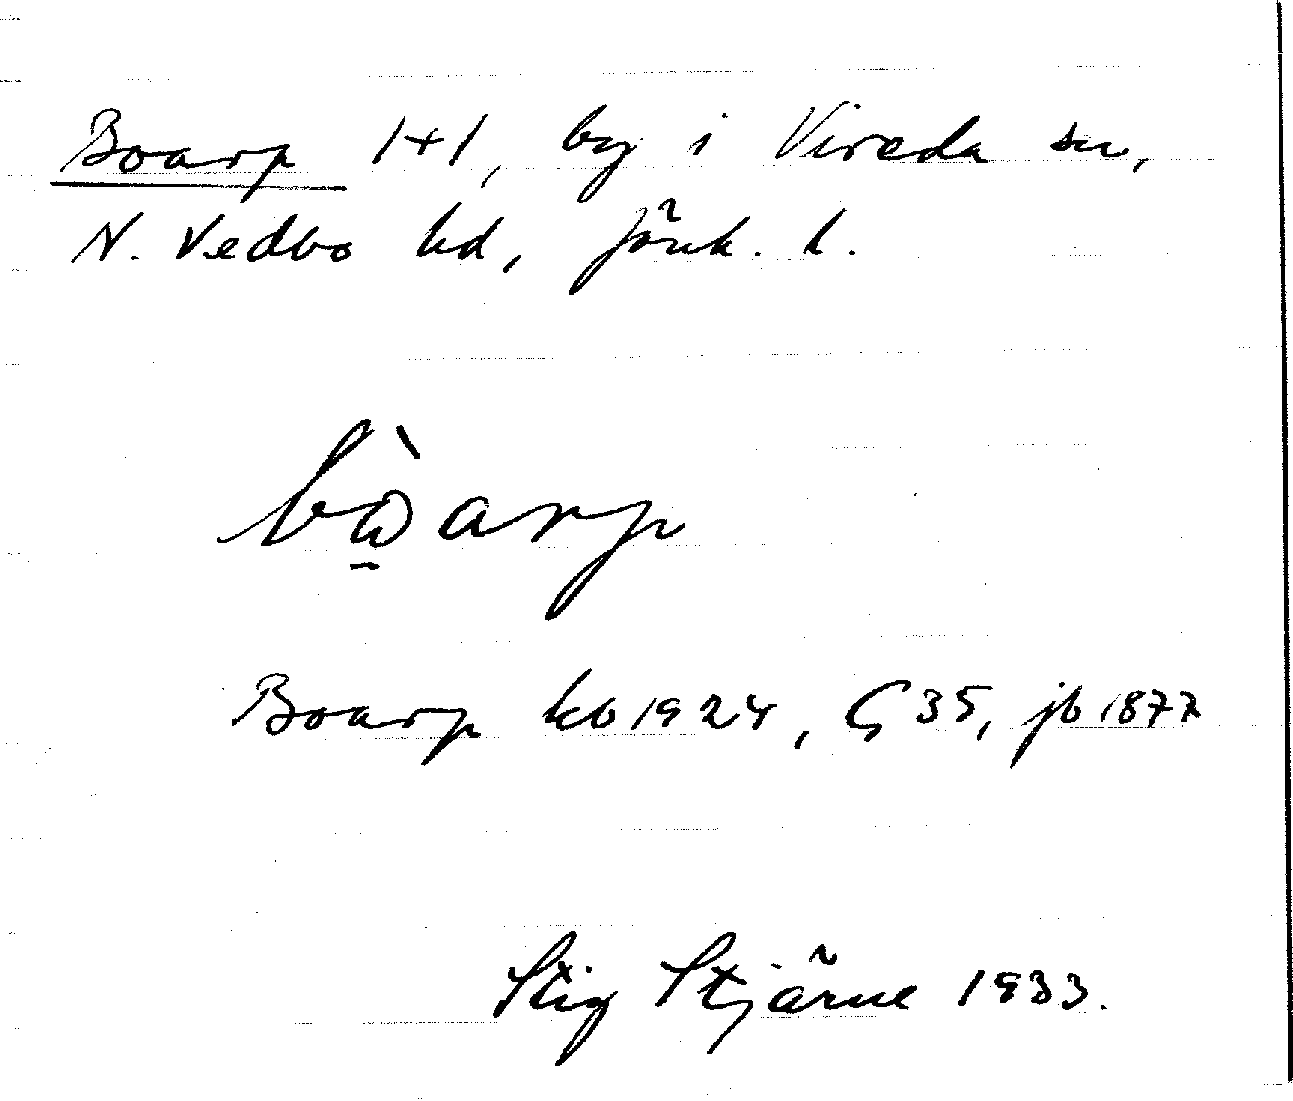 Boarp 1+1, by i Vireda sn,
N. Vedbo hd, Jönk. l.
bὼ̲arp
Boarp kb 1924, G 35, jb 1877
Stig Stjärne 1933.